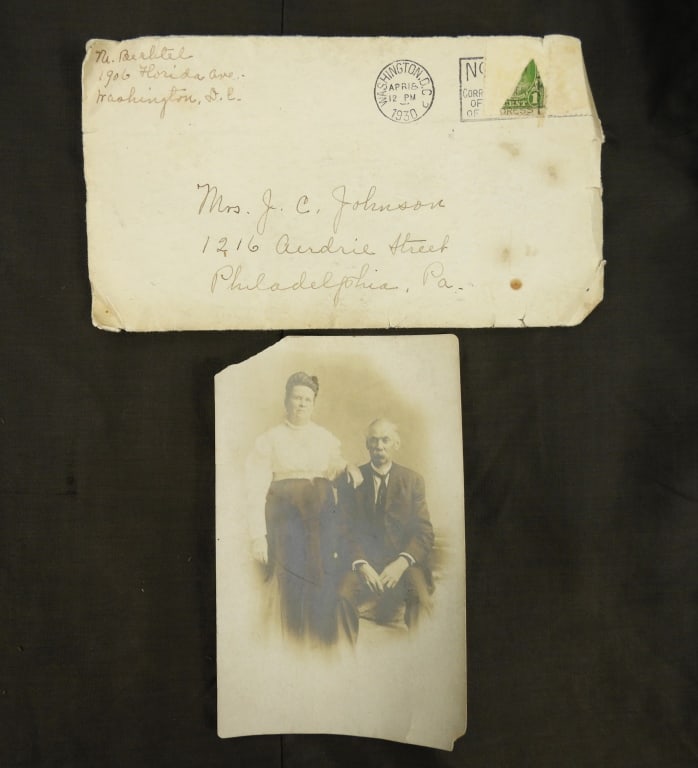 M. Bechtel
1906 Florida Ave.
Washington, D.C.
WASHINGTON, D.C.
APR 18
12 PM
1930
CORR
OF
OF DRESS
1
Mrs. J. C. Johnson
1216 Airdrie Street
Philadelphia, Pa.